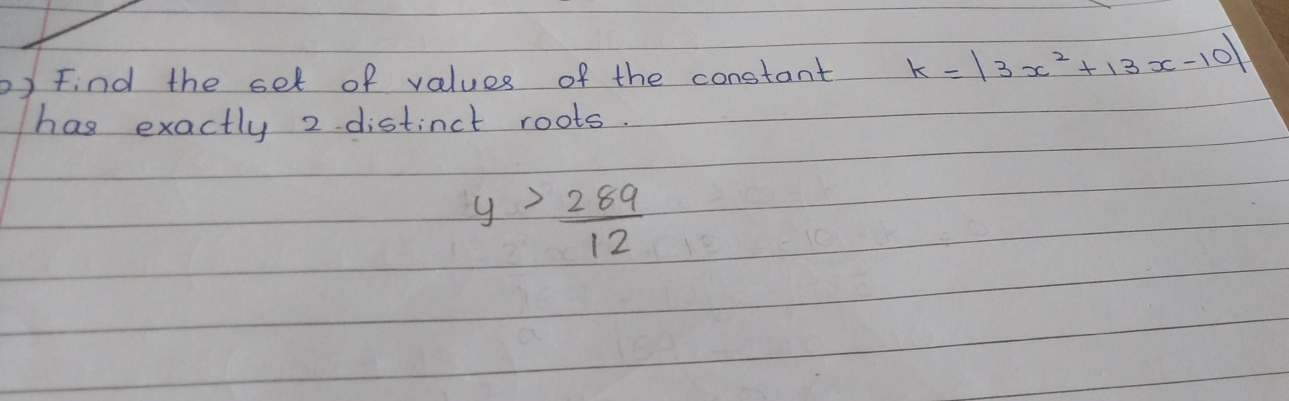 b) Find the set of values of the constant k = |3x² + 13x - 10|
has exactly 2 distinct roots.
y > 289/12